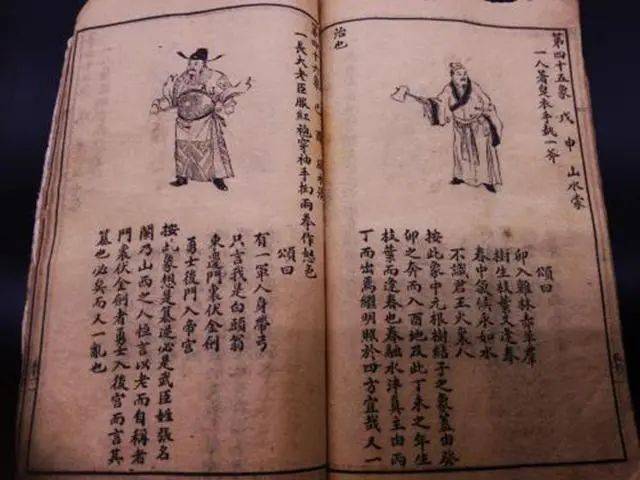 第四十五象 戊申 山水蒙
一人著皂衣手執一斧
頌曰
卯入雞林赤羊群
樹生枝葉又逢春
春中氣候永如水
不識君王火象八
按此象中元根樹結子之象蓋由癸
卯之介而入酉地及此丁未之年生
枝葉而逢春也春融水津真主由丙
丁而出焉繼明照於四方宜哉又一
治也
第四十六象 己酉
一長大老臣服紅袍窄袖手揣兩拳作怒色
頌曰
有一軍人身帶弓
只言我是白頭翁
東邊門裏伏金劍
勇士後門入帝宮
按此象想是篡逆必是武臣姓張名
闕乃山西之人恒言以老而自稱者
門裏伏金劍者勇士入後宮而言其
篡也必矣而又一亂也